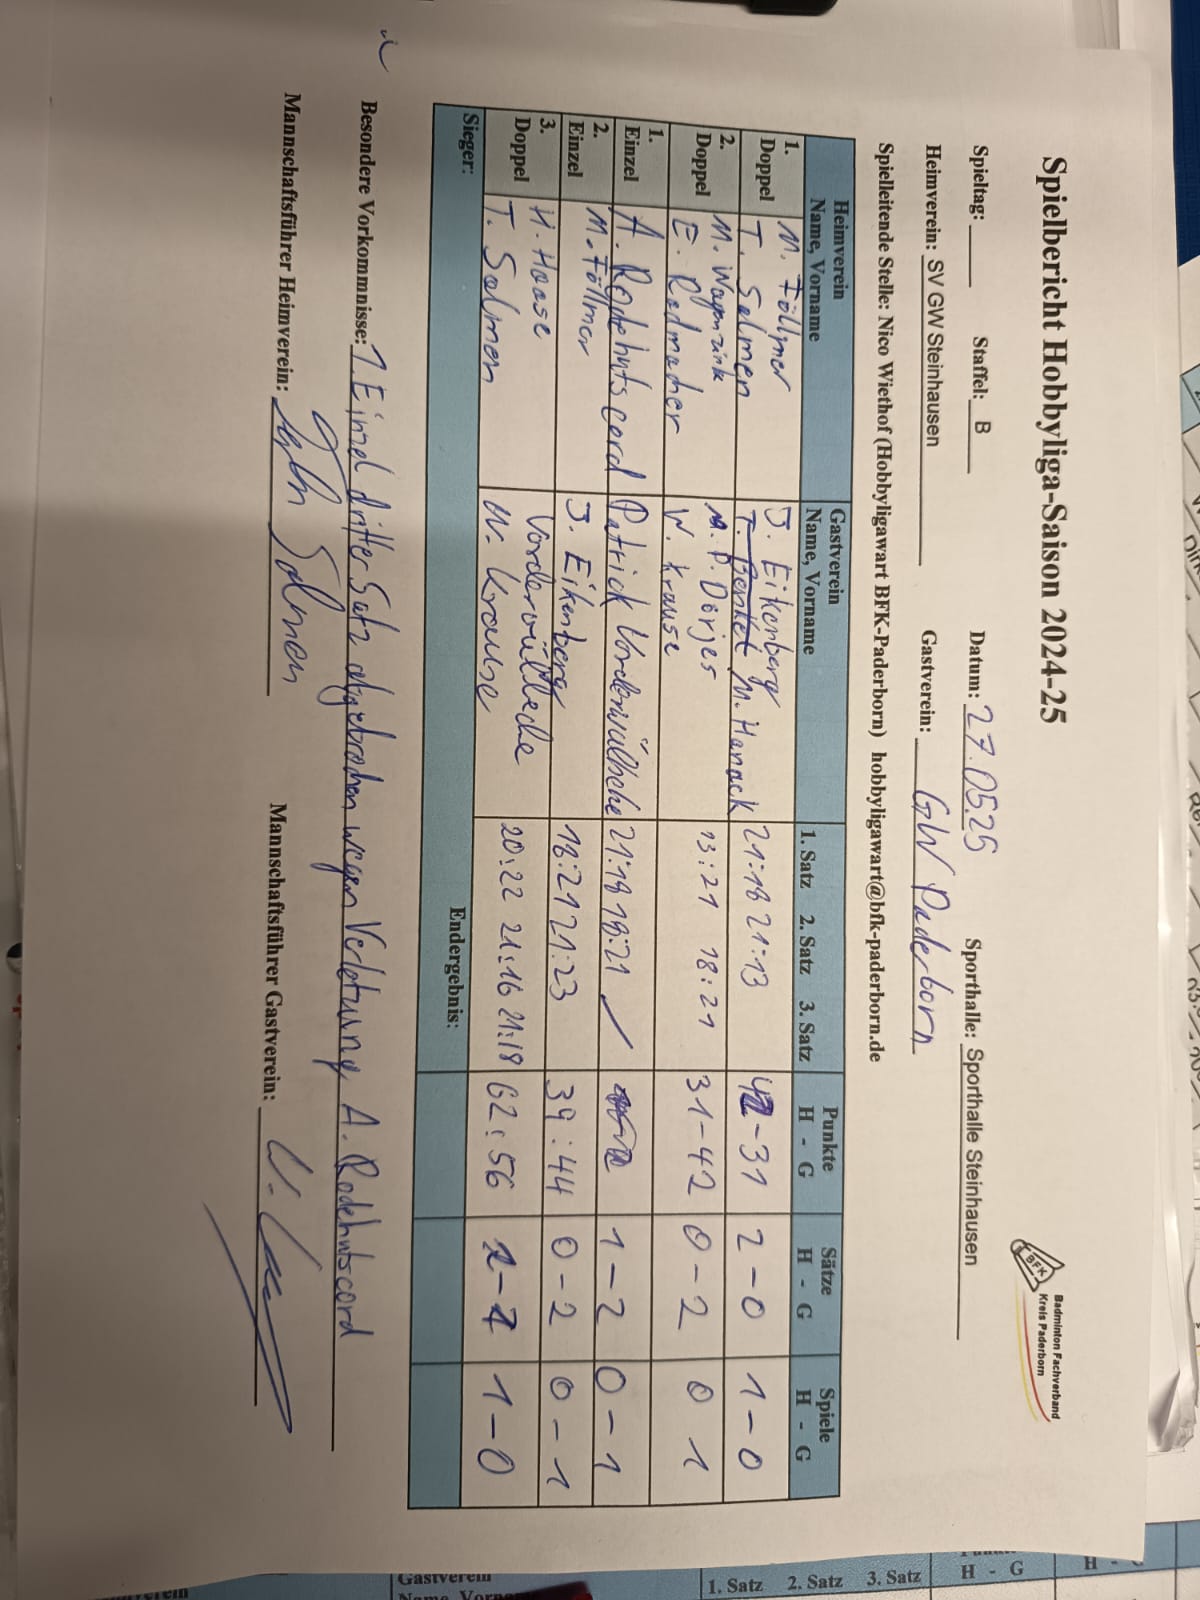 Spielbericht Hobbyliga-Saison 2024-25
BFK
Badminton Fachverband
Kreis Paderborn
Spieltag: Staffel: B Datum: 27.05.25 Sporthalle: Sporthalle Steinhausen
Heimverein: SV GW Steinhausen Gastverein: GW Paderborn
Spielleitende Stelle: Nico Wiethof (Hobbyligawart BFK-Paderborn) hobbyligawart@bfk-paderborn.de
Heimverein Gastverein Punkte Sätze Spiele
Name, Vorname Name, Vorname 1. Satz 2. Satz 3. Satz H - G H - G H - G
1. M. Föllmer J. Eikenberg
Doppel T. Salmen T. Benket M. Hanack 21:18 21:13 42-31 2-0 1-0
2. M. Wagenzink M. P. Dörjes
Doppel E. Radmacher W. Krause 13:21 18:21 31-42 0-2 0 1
1.
Einzel A. Rodehutscord Patrick Vorderwülbeke 21:18 18:21 1-2 0-1
2.
Einzel M. Föllmer J. Eikenberg 18:21 21:23 39:44 0-2 0-1
3. H. Haase Vorderwülbecke
Doppel T. Salmen W. Krause 20:22 21:16 21:18 62:56 2-1 1-0
Sieger: Endergebnis:
Besondere Vorkommnisse: 1. Einzel dritter Satz abgebrochen wegen Verletzung A. Rodehutscord
Mannschaftsführer Heimverein: Salmen Mannschaftsführer Gastverein:
Gastverein
1. Satz 2. Satz 3. Satz H - G